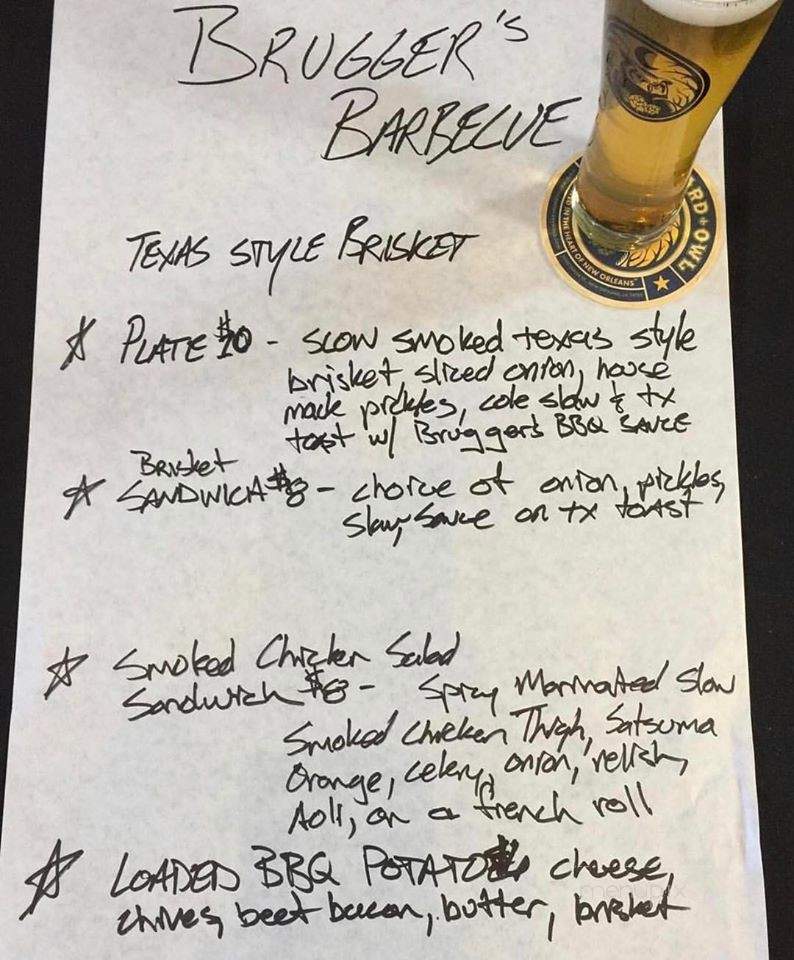 BRUGGER'S
BARBECUE
TEXAS STYLE BRISKET
☆ PLATE $10 - SLOW SMOKED texas style
brisket sliced onion, house
made pickles, cole slaw & tx
toast w/ Brugger's BBQ SAUCE
Brisket
☆ SANDWICH $8 - choice of onion, pickles,
slaw, sauce on tx toAst
☆ Smoked Chicken Salad
Sandwich $8 - Spicy Marinated Slow
Smoked Chicken Thigh, Satsuma
Orange, celery, onion, relish,
Aoli, on a french roll
☆ LOADED BBQ POTATO cheese,
chives, beef bacon, butter, brisket
RD + OWL
IN THE HEART OF NEW ORLEANS